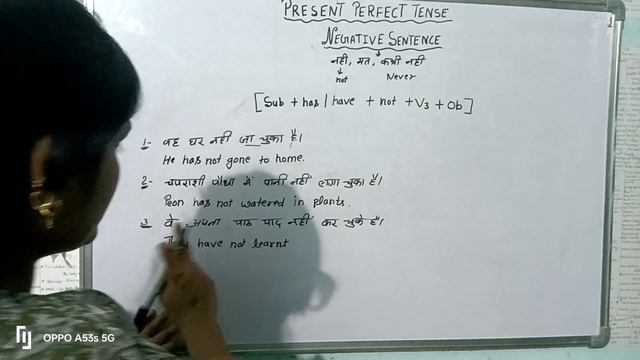 PRESENT PERFECT TENSE
NEGATIVE SENTENCE
नही, मत, कभी नही
not Never
[Sub + has / have + not + V3 + Ob]
1- वह घर नही जा चुका है।
He has not gone to home.
2- चपराशी पौधा में पानी नहीं लगा चुका है।
Peon has not watered in plants.
3 वे अपना पाठ याद नहीं कर चुके हैं।
They have not learnt
OPPO A53s 5G